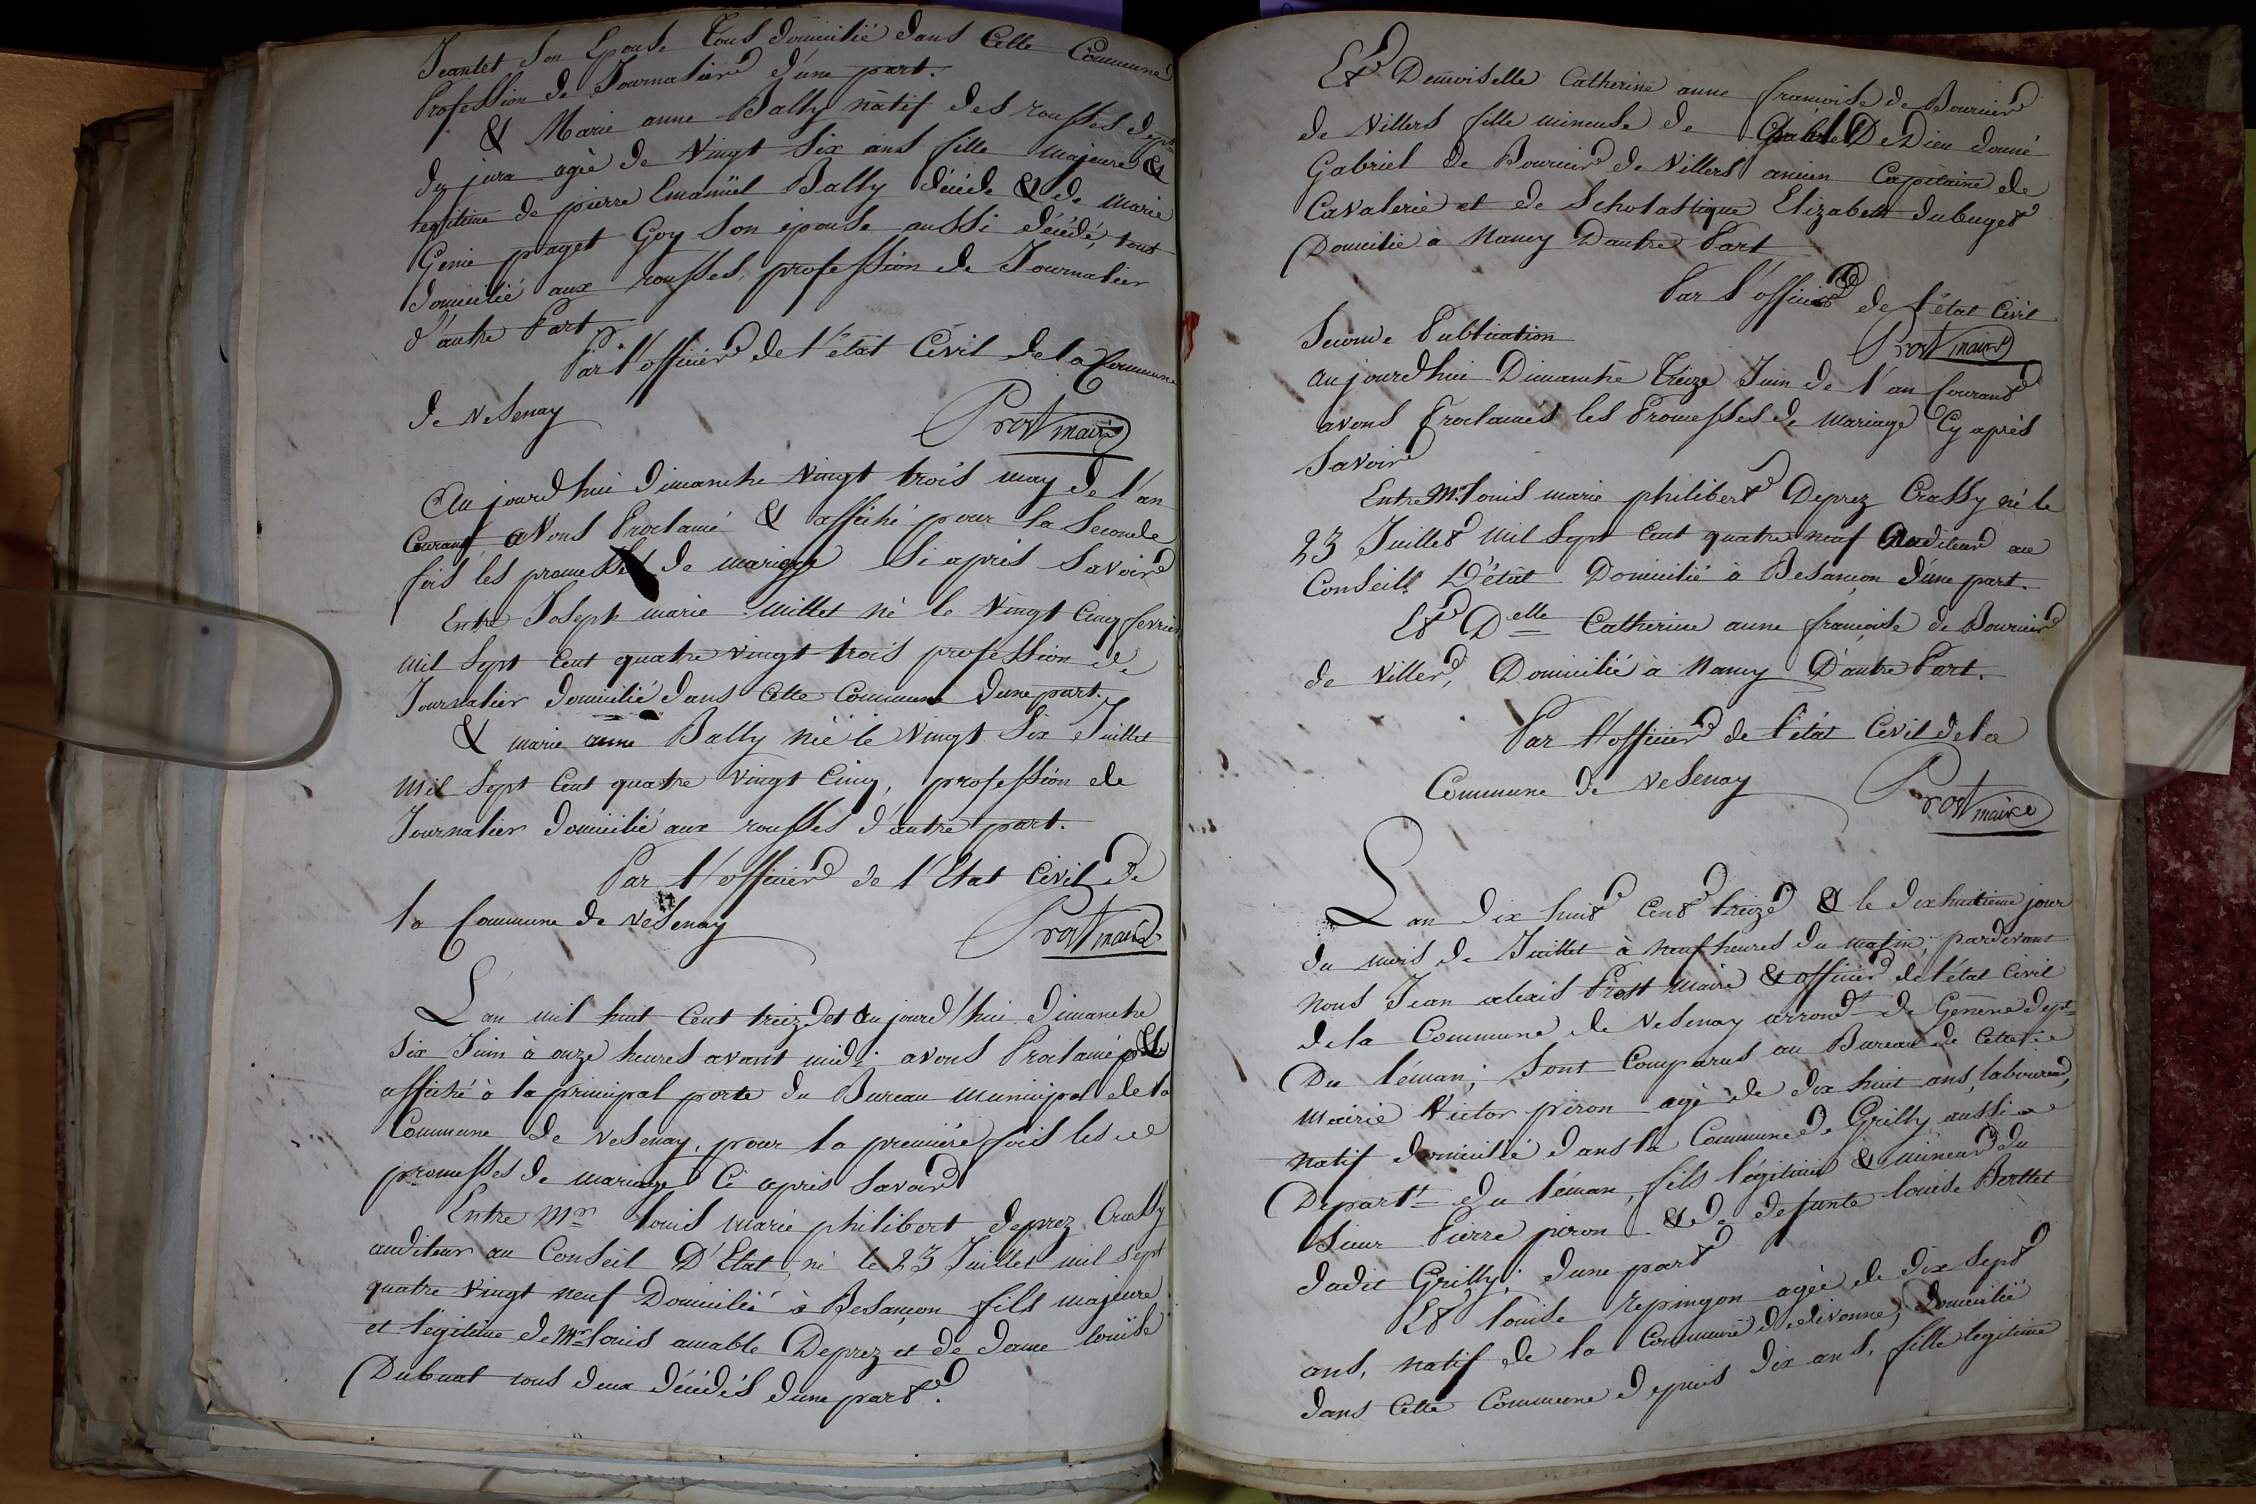 Jeantet Son Epouse Tous domicilié dans Cette Commune
Profession de Journalier d'une part.
& Marie anne Bally natif des rousses dept
du jura agée de Vingt Six ans fille majeure &
legitime de pierre Emanüel Bally décédé & de Marie
Genie paget Goy Son épouse aussi décédé, tous
domicilié aux rousses, profession de Journalier
d'autre Part
Par l'officier de l'état Civil de la Commune
de Vesenay
Prost maire
Au jourd'hui dimanche Vingt trois may de l'an
Courant avons Proclamé & affiché pour la Seconde
fois les promesses de mariage Si après Savoir
Entre Joseph marie Millet né le Vingt Cinq fevrier
mil Sept Cent quatre vingt trois profession de
Journalier domicilié dans Cette Commune d'une part.
& marie anne Bally née le Vingt Six Juillet
mil Sept Cent quatre Vingt Cinq, profession de
Journalier domicilié aux rousses d'autre part.
Par l'officier de l'Etat Civil de
la Commune de Vesenay
Prost maire
L'an mil huit Cent treize et au jourd'hui dimanche
Six Juin à onze heures avant midi avons Proclamé &
affiché à la principal porte du Bureau Municipal de la
Commune de Vesenay, pour la première fois les
promesses de mariage Ci après Savoir
Entre Mr Louis marie philibert deprez Crassy
auditeur au Conseil D'Etat, né le 23 Juillet mil Sept
quatre Vingt neuf Domicilié à Besançon fils majeure
et legitime de Mr louis amable Deprez et de dame louïse
Dubuat tous deux décédés d'une part.
Et Demoiselle Catherine anne françoise de Bourcier
de Villers fille mineuse de De Dieu donné
Gabriel de Bourcier de Villers ancien Capitaine de
Cavalerie et de Scholastique Elizabeth dubuget
Domicilié à Nancy D'autre Part
Par l'officier de l'état Civil
Prost maire
Seconde Publication
Au jourd'hui Dimanche Treize Juin de l'an Courant
avons Proclamés les Promesses de mariage Cy après
Savoir
Entre Mr louis marie philibert Deprez Crassy né le
23 Juillet Mil Sept Cent quatre neuf Auditeur au
Conseil D'état Domicilié à Besançon d'une part.
Et Delle Catherine anne françoise de Bourcier
de Viller, Domicilié à Nancy D'autre Part.
Par l'officier de l'état Civil de la
Commune de Vesenay
Prost maire
L'an dix huit Cent treize & le dixhuitieme jour
du mois de Juillet à neuf heures du matin, pardevant
nous Jean alexis Prost Maire & officier de l'état Civil
de la Commune de Vesenay arrondt de Genêve dept
Du Léman; Sont Comparus au Bureau de Cette
Mairie Victor piron agé de dix huit ans, laboureur,
natif domicilié dans la Commune de Grilly aussi
Departt du léman, fils légitime & mineur du
Sieur Pierre piron & de defunte louise Berthet
dudit Grilly; d'une part
Et louise repingon agée de dix Sept
ans, natif de la Commune de divonne, domicilié
dans Cette Commune depuis dix ans, fille legitime